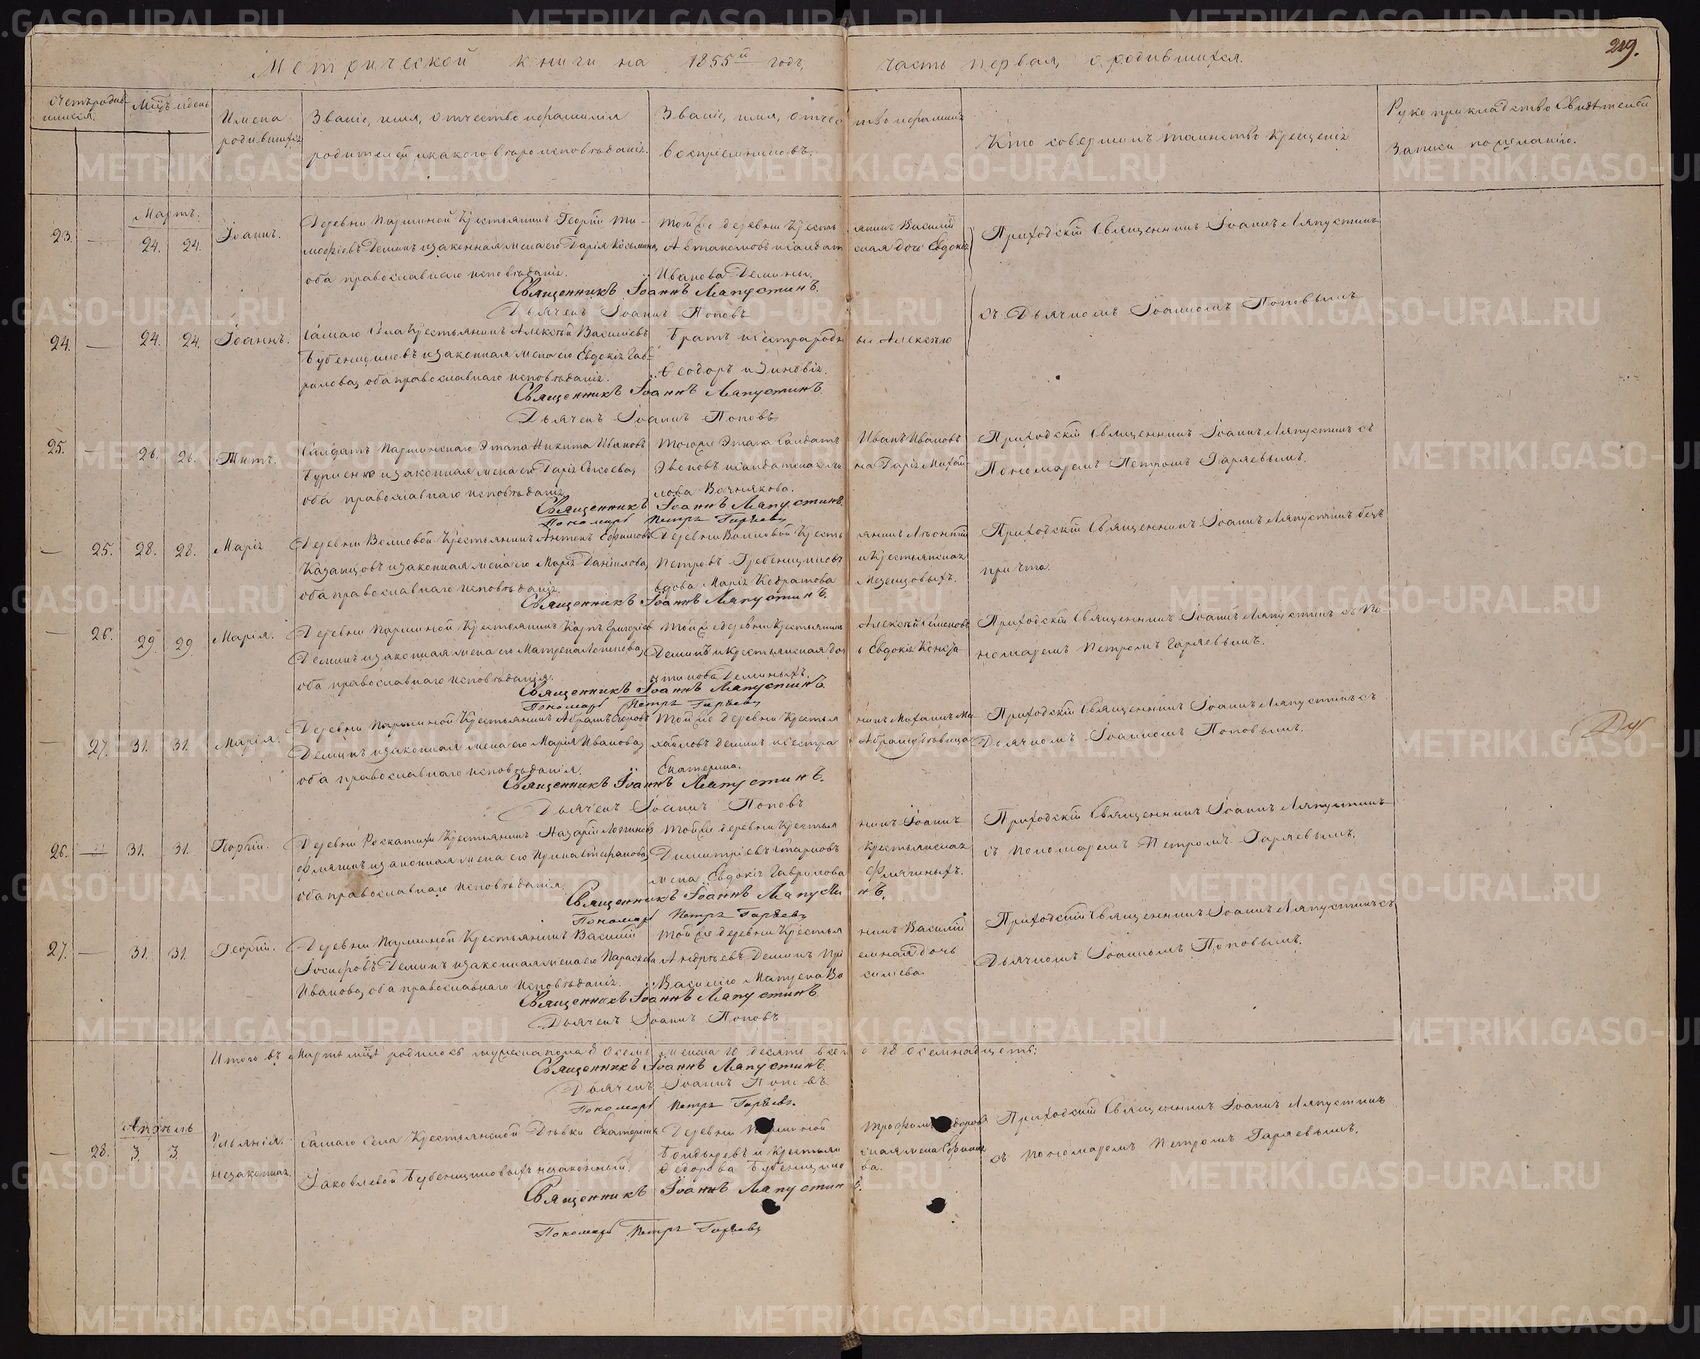 219.
Метрической книги на 1855й годъ, часть первая, о родившихся.
Счетъ родив-
шихся.
Мѣсяцъ и день
Имена
родившихся
Званіе, имя, отчество и фамилія
родителей и какого вѣроисповѣданія.
Званіе, имя, отчество и фамилія
воспріемниковъ.
Кто совершалъ таинство крещенія
Рукоприкладство свидѣтелей
записи по желанію.
Мартъ.
23. — 24. 24. Іоаннъ.
Деревни Паршиной Крестьянинъ Георгій Ти-
мофѣевъ Деминъ и законная жена его Дарія Козьмина,
оба православнаго исповѣданія.
Той же деревни Крестьянинъ Василій
Астаѳіевъ и солдатская дочь Евдокія
Иванова Демины.
Приходскій Священникъ Іоаннъ Ляпустинъ
съ Дьячкомъ Іоанномъ Поповымъ.
Священникъ Іоаннъ Ляпустинъ.
Дьячекъ Іоаннъ Поповъ
24. — 24. 24. Іоаннъ.
Самаго села Крестьянинъ Алексѣй Васильевъ
Бубенщиковъ и законная жена его Евдокія Гав-
рилова, оба православнаго исповѣданія.
Братъ и сестра родные Алексѣю
Ѳеодоръ и Зиновія.
Священникъ Іоаннъ Ляпустинъ
Дьячекъ Іоаннъ Поповъ
25. — 26. 26. Титъ.
Солдатъ Паршинскаго Этапа Никита Ивановъ
и законная жена его Дарія
оба православнаго исповѣданія
Тогоже Этапа Солдатъ Иванъ Ивановъ
и солдатская жена Дарія Михай-
лова
Приходскій Священникъ Іоаннъ Ляпустинъ съ
Пономаремъ Петромъ Гаряевымъ.
Священникъ Іоаннъ Ляпустинъ.
Пономарь Петръ Гаряевъ
— 25. 28. 28. Марія
Деревни Волковой Крестьянинъ Антонъ Ефимовъ
Казанцовъ и законная жена его Марія Данилова,
оба православнаго исповѣданія.
Деревни Волковой Крестьянинъ Леонтій
Петровъ Гребенщиковъ и Крестьянская
вдова Марія Кодратова
Приходскій Священникъ Іоаннъ Ляпустинъ безъ
причта.
Священникъ Іоаннъ Ляпустинъ.
— 26. 29. 29 Марія.
Деревни Паршиной Крестьянинъ Карпъ Григорьевъ
Деминъ и законная жена его Матрена Логинова,
оба православнаго исповѣданія.
Той же деревни Крестьянинъ Алексѣй Семеновъ
Деминъ и крестьянская дочь Евдокія
Деминыхъ.
Приходскій Священникъ Іоаннъ Ляпустинъ съ По-
номаремъ Петромъ Гаряевымъ.
Священникъ Іоаннъ Ляпустинъ
Пономарь Петръ Гаряевъ
— 27. 31. 31. Марія.
Деревни Паршиной Крестьянинъ Абрамъ Егоровъ
Деминъ и законная жена его Марія Иванова,
оба православнаго исповѣданія.
Той же деревни Крестьянинъ Михаилъ Ми-
хайловъ Деминъ и сестра Абраму дѣвица
Екатерина.
Приходскій Священникъ Іоаннъ Ляпустинъ съ
Дьячкомъ Іоанномъ Поповымъ.
Священникъ Іоаннъ Ляпустинъ.
Дьячекъ Іоаннъ Поповъ
26. — 31. 31. Георгій.
Деревни Роскатихи Крестьянинъ Назарій Логиновъ
Флягинъ и законная жена его Ирина Стефанова,
оба православнаго исповѣданія.
Той же деревни Крестьянинъ Іоаннъ
Димитріевъ и Крестьянская
жена Евдокія Гаврилова Флягиныхъ.
Приходскій Священникъ Іоаннъ Ляпустинъ
съ Пономаремъ Петромъ Гаряевымъ.
Священникъ Іоаннъ Ляпустинъ.
Пономарь Петръ Гаряевъ
27. — 31. 31. Георгій.
Деревни Паршиной Крестьянинъ Василій
Іосифовъ Деминъ и законная жена его Параскева
Иванова, оба православнаго исповѣданія.
Той же деревни Крестьянинъ Василій
Андреевъ Деминъ дочь
Василію Матрена Васильева.
Приходскій Священникъ Іоаннъ Ляпустинъ съ
Дьячкомъ Іоанномъ Поповымъ.
Священникъ Іоаннъ Ляпустинъ
Дьячекъ Іоаннъ Поповъ
Итого въ Мартѣ мѣсяцѣ родилось мужеска пола 8 осемь женска 10 десять всего 18 осемнадцать.
Священникъ Іоаннъ Ляпустинъ
Дьячекъ Іоаннъ Поповъ
Пономарь Петръ Гаряевъ.
Апрѣль
— 28. 3. 3. Ульянія.
незаконная.
Самаго Села Крестьянской Дѣвки Екатерины
Яковлевой Бубенщиковыхъ незаконный.
Деревни Паршиной Трофимъ
и Крестьянская жена
Федорова Бубенщикова.
Приходскій Священникъ Іоаннъ Ляпустинъ
съ Пономаремъ Петромъ Гаряевымъ.
Священникъ Іоаннъ Ляпустинъ.
Пономарь Петръ Гаряевъ
METRIKI.GASO-URAL.RU